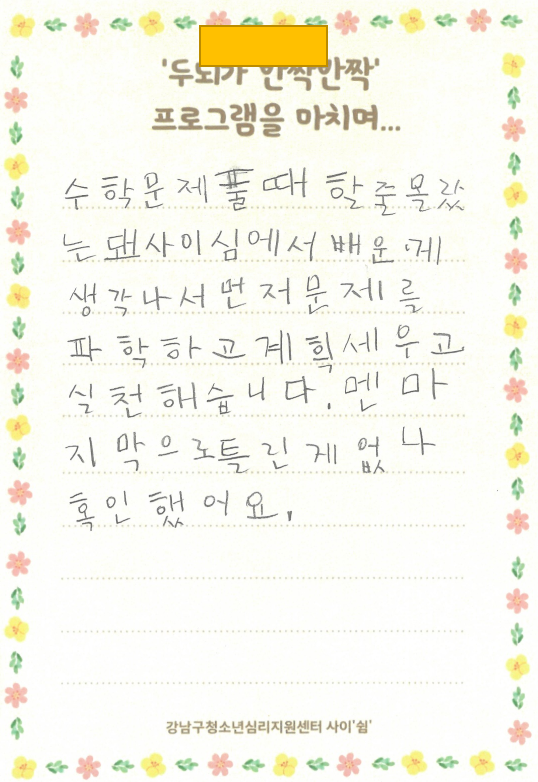 '두뇌가 반짝반짝'
프로그램을 마치며...
수학문제풀때 할줄몰랐
는데사이심에서 배운게
생각나서먼저문제를
파학하고계획세우고
실천해습니다. 멘마
지막으로틀린게없나
혹인했어요.
강남구청소년심리지원센터 사이'쉼'